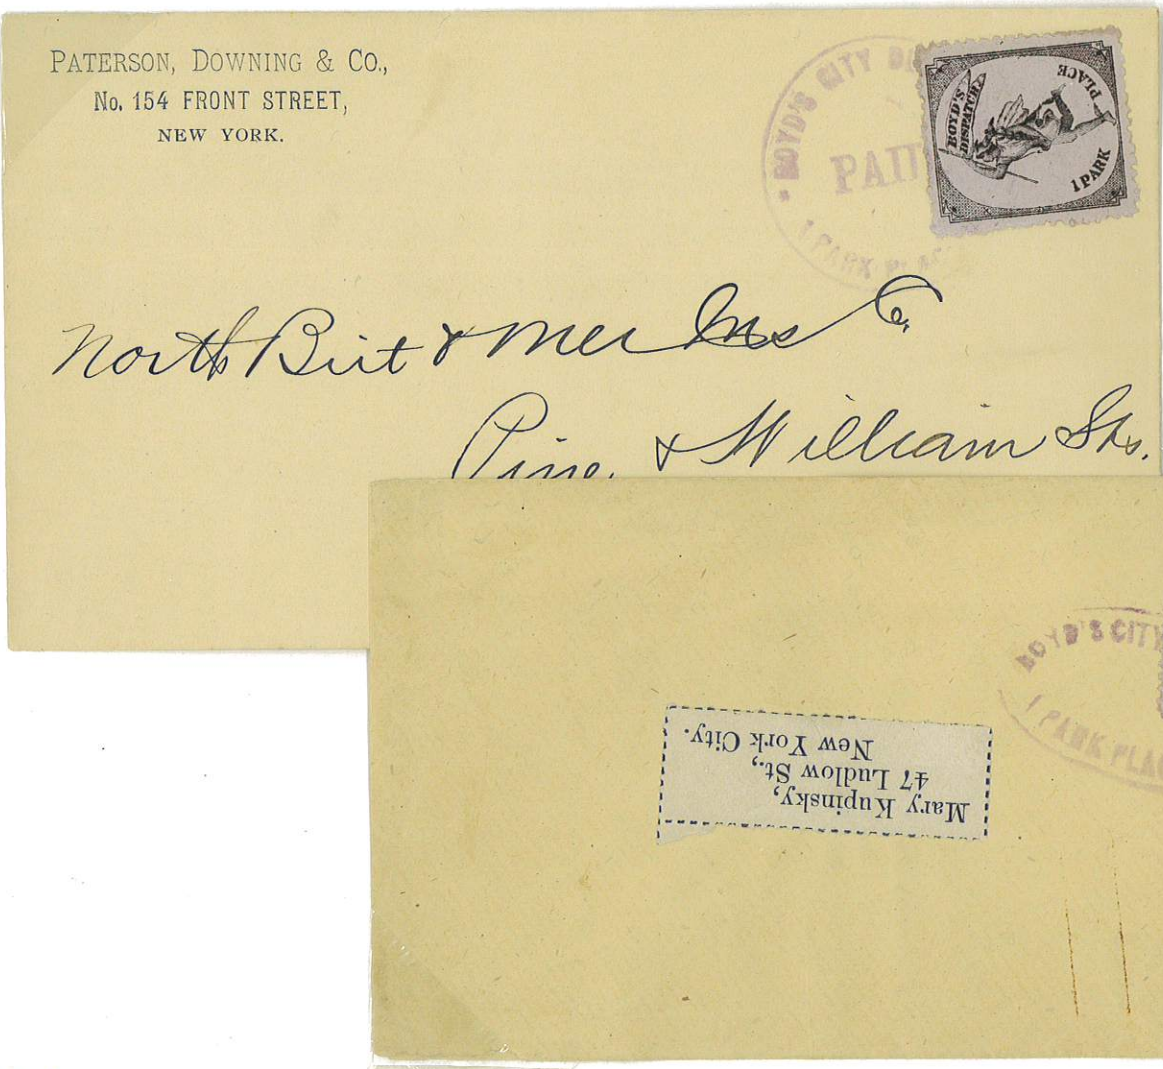 PATERSON, DOWNING & CO.,
No. 154 FRONT STREET,
NEW YORK.
BOYD'S CITY
PAID
1 PARK PLAC
BOYD'S
DISPATCH
1 PARK
PLACE
North Brit & Mer Ins Co.
Pine & William Sts.
BOYD'S CITY
1 PARK PLAC
Mary Kupinsky,
47 Ludlow St.,
New York City.